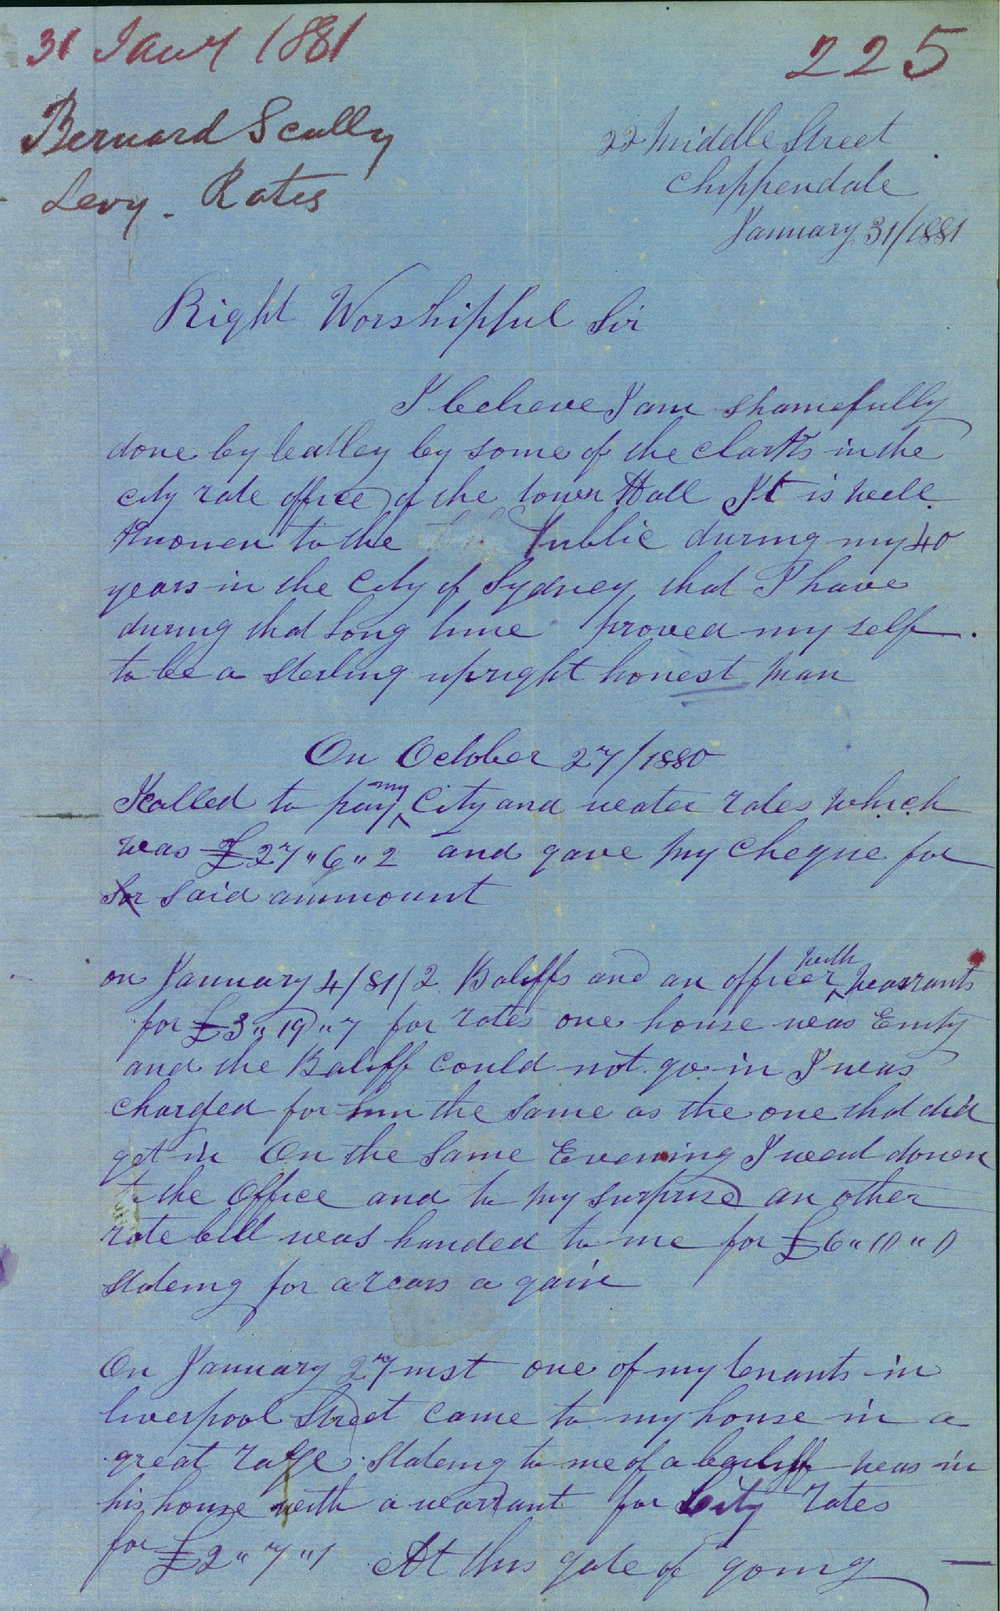 31 Jany 1881
225
Bernard Scully
Levy. Rates
22 Middle Street
Chippendale
January 31/1881
Right Worshipful Sir
I beleieve I am shamefully
done by by some of the clarks in the
city rate office of the town Hall It is well
known to the Public during my 40
years in the City of Sydney that I have
during that long time proved my self
to be a sterling upright honest man
On October 27/1880
I called to pay my City and water rates which
was £27"6"2 and gave my cheque for
for said ammount
on January 4/81/2 Baliffs and an officer with warrants
for £3"19"7 for rates one house was Emty
and the Baliff could not go in I was
charged for him the same as the one that did
get in On the same Evening I went down
to the office and to my surprise an other
rate bill was handed to me for £6"10"0
stateing for arears a gain
On January 27 inst one of my tenants in
liverpool Street came to my house in a
great rage stateing to me of a bailiff was in
his house with a warrant for City rates
for £2"7"1 At this gate of going